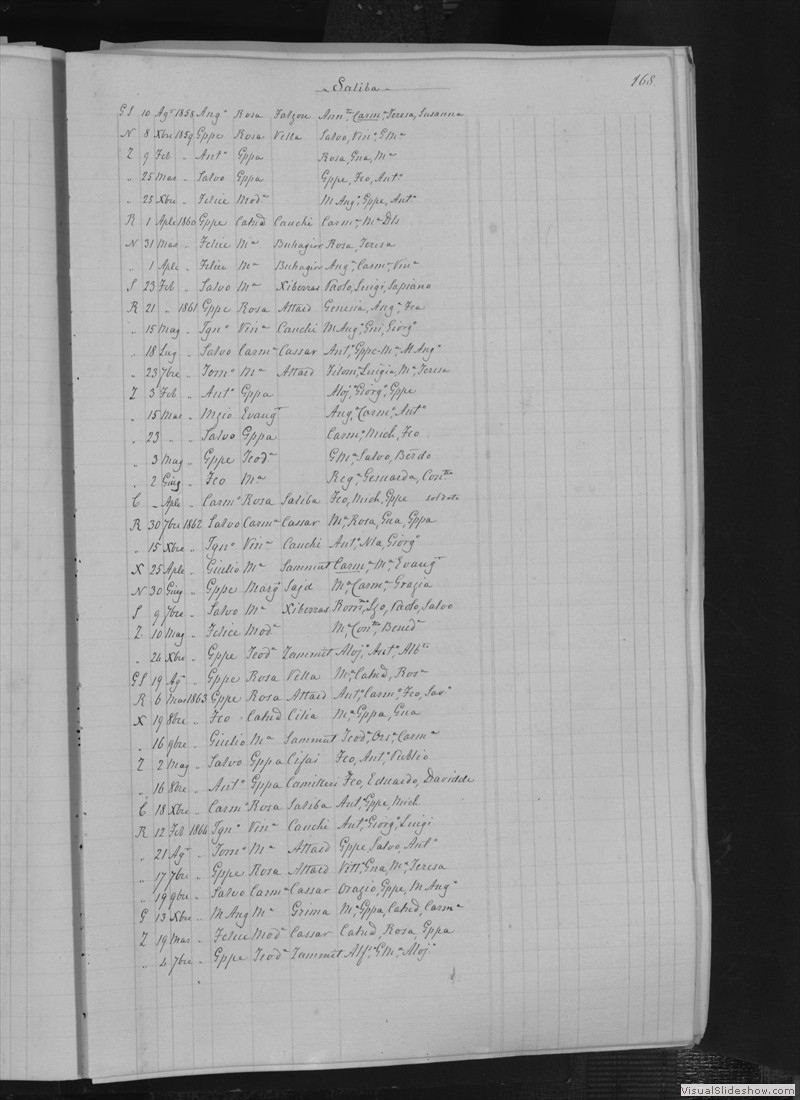 Saliba 168
GS 10 Agto 1858 Ango Rosa Falzon Annta, Carma, Teresa, Susanna
N 8 Xbre 1859 Gppe Rosa Vella Salvo, Vina, GMa
Z 9 Feb „ Anto Gppa Rosa, Gna, Ma
„ 25 Mar „ Salvo Gppa Gppe, Fco, Anto
„ 25 Xbre „ Felice Moda M Anga, Gppe, Anto
R 1 Aple 1860 Gppe Catnd Cauchi Carma, Ma Dls
N 31 Mar „ Felice Ma Buhagiar Rosa, Teresa
„ 1 Aple „ Felice Ma Buhagiar Anga, Carma, Vina
S 23 Feb „ Salvo Ma Xiberras Paolo, Luigi, Sapiano
R 21 „ 1861 Gppe Rosa Attard Genesia, Anga, Fca
„ 15 Mag „ Igno Vina Cauchi M Anga, Gni, Giorgo
„ 18 Lug „ Salvo Carma Cassar Anto, Gppe, Ma, M Anga
„ 23 7bre „ Tomo Ma Attard Filoma, Luigia, Ma, Teresa
Z 3 Feb „ Anto Gppa Aloja, Giorgo, Gppe
„ 15 Mar „ Ngio Evangta Anga, Carmo, Anto
„ 23 „ „ Salvo Gppa Carmo, Mich, Fco
„ 3 Mag „ Gppe Teoda GMa, Salvo, Berdo
„ 2 Giug „ Fco Ma Rega, Genuarda, Conta
C – Aple „ Carmo Rosa Saliba Fco, Mich, Gppe soldato
R 30 7bre 1862 Salvo Carma Cassar Ma, Rosa, Gna, Gppa
„ 15 Xbre „ Igno Vina Cauchi Anto, Nla, Giorgo
X 25 Aple „ Giulio Ma Sammut Carma, Ma, Evangta
N 30 Giug „ Gppe Marga Sajd Ma, Carma, Grazia
S 9 7bre „ Salvo Ma Xiberras Lzo, Paolo, Salvo
Z 10 Mag „ Felice Moda Ma, Conta, Beneda
„ 26 Xbre „ Gppe Teoda Zammit Alojo, Anto, Albto
GS 19 Agto „ Gppe Rosa Vella Ma, Catnd, Rosa
R 6 Mar 1863 Gppe Rosa Attard Anto, Carmo, Fco, Savo
X 19 8bre „ Fco Catnd Cilia Ma, Gppa, Gna
„ 16 9bre „ Giulio Ma Sammut Teoda, Orsa, Carma
Z 2 Mag „ Salvo Gppa Cifai Fco, Anto, Publio
„ 16 8bre „ Anto Gppa Camilleri Fco, Eduardo, Davidde
C 18 Xbre „ Carmo Rosa Saliba Anto, Gppe, Mich
R 12 Feb 1864 Igno Vina Cauchi Anto, Giorgo, Luigi
„ 21 Agto „ Tomo Ma Attard Gppe, Salvo, Anto
„ 17 7bre „ Gppe Rosa Attard Vitta, Gna, Ma, Teresa
„ 19 9bre „ Salvo Carma Cassar Orazio, Gppe, M Ango
G 13 Xbre „ M Ang Ma Grima Ma, Gppa, Catnd, Carma
Z 19 Mar „ Felice Moda Cassar Catnd, Rosa, Gppa
„ 4 7bre „ Gppe Teoda Zammit Alfo, GMa, Alojo
VisualSlideshow.com